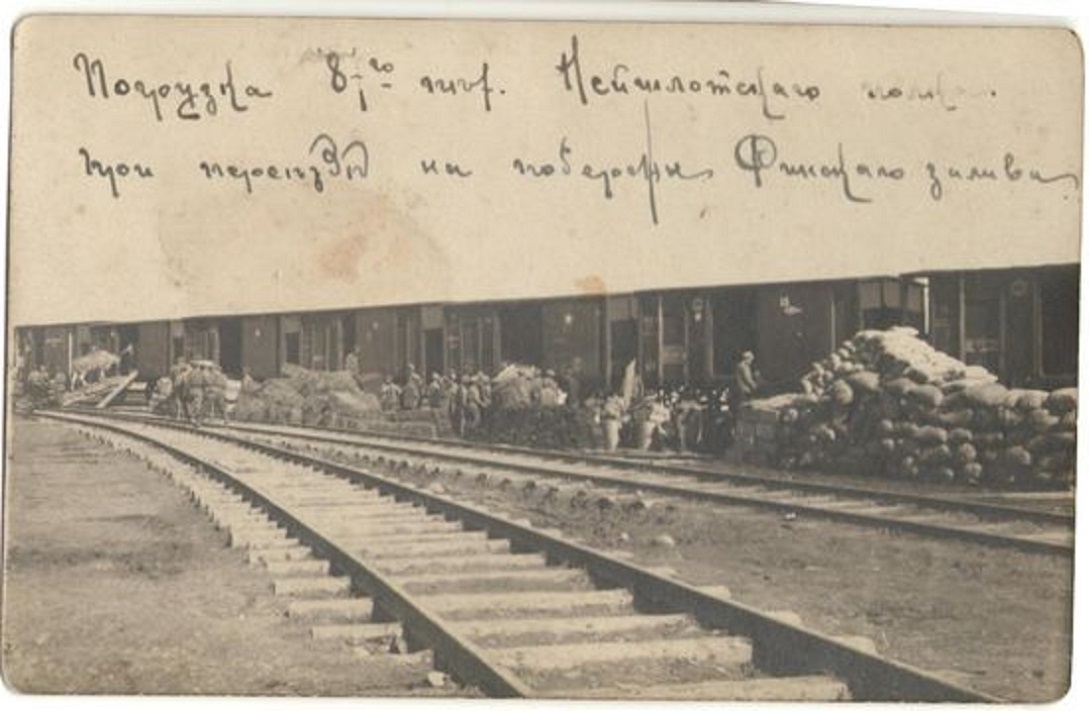 Погрузка 8-го пѣх. Нейшлотскаго полка.
при переѣздѣ на побережье Финскаго залива